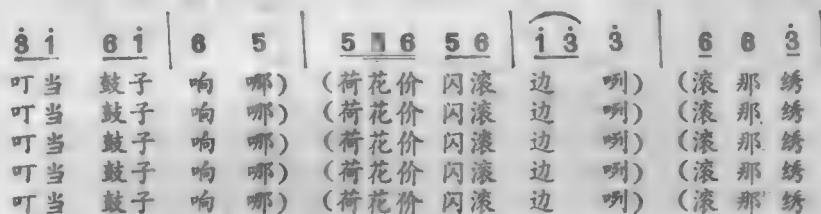 3̇ 1̇ 6 1̇ | 6 5 | 5 6 5 6 | 1̇ 3̇ 3̇ | 6 6 3̇
叮当 鼓子 响 哪）（荷花价 闪滚 边 咧）（滚 那 绣
叮当 鼓子 响 哪）（荷花价 闪滚 边 咧）（滚 那 绣
叮当 鼓子 响 哪）（荷花价 闪滚 边 咧）（滚 那 绣
叮当 鼓子 响 哪）（荷花价 闪滚 边 咧）（滚 那 绣
叮当 鼓子 响 哪）（荷花价 闪滚 边 咧）（滚 那 绣